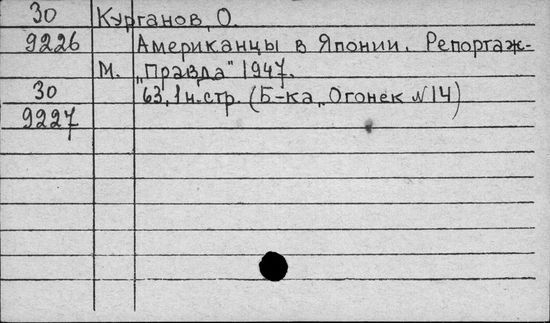 30 Курганов, О.
9226 Американцы в Японии. Репортаж-
М. „Правда" 1947.
30 63, 1 н. стр. (Б-ка „Огонек №14)
9227